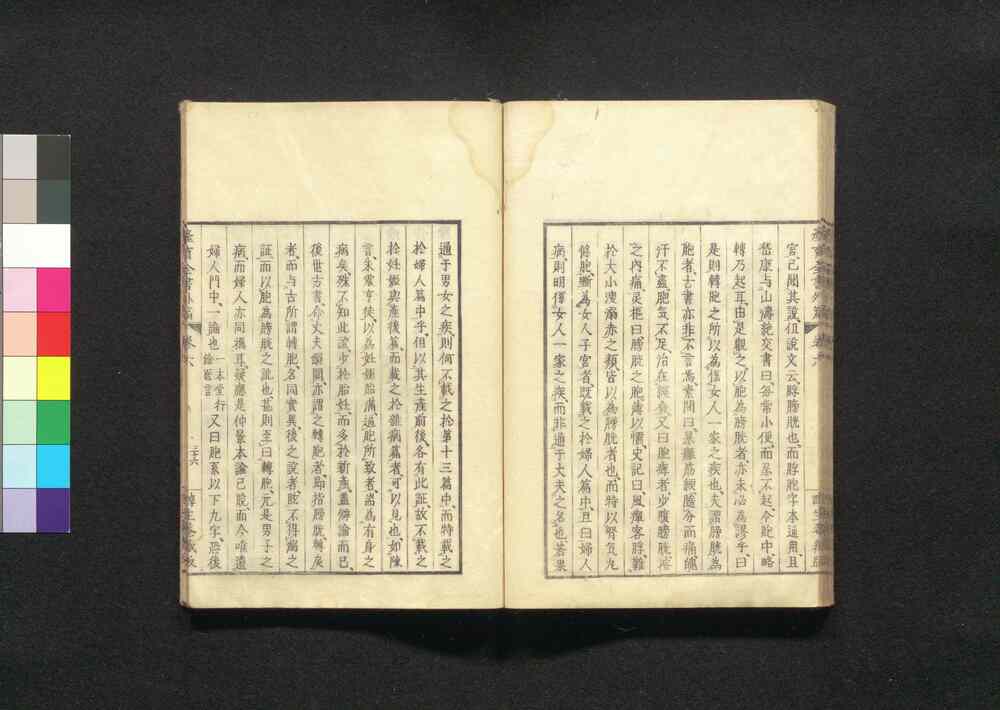 宮、已聞其説、但説文云、脬膀胱也、而脬胞字本通用、且
嵆康与山濤絶交書曰、每常小便、而忍不起、令胞中略
轉乃起耳、由是觀之、以胞為膀胱者、亦未必為謬乎、曰
是則轉胞之所以為僅女人一家之疾也、夫謂膀胱為
胞者、古書亦非不言焉、素問曰、
汗不盡、胞氣不足、治在經俞、又曰、胞痺者、少腹膀胱、按
之内痛、灵樞曰、膀胱之胞薄以懦、史記曰、風癉客脬、難
於大小溲、溺赤之類、皆以為膀胱者也、而特以腎氣九
胞、斷為女人子宮者、既載之於婦人篇中、且曰婦人
病、則明僅女人一家之疾、而非通于丈夫之名也、若果
通于男女之疾、則何不載之於第十三篇中、而特載之
於婦人篇中乎、但以其生產前後、各有此証、故不載之
於妊娠與產後篇、而載之於雜病篇者、可以見也、如陳
言朱震亨徒、以為妊娠胎滿逼胞所致者、耑為有身之
病矣、殊不知此証少於胎妊、而多於新產、盡僻論而已、
後世古書、命丈夫
者、而与古所謂轉胞、名同實異、後之説者、既不得耑之
証、而以胞為膀胱之訛也、甚則至曰轉胞元是男子之
病、而婦人亦同攝耳、疑應是仲景本論已脱、而今唯遺
婦人門中、一論也 一本堂行
餘醫言 又曰胞系以下九字、恐後
卷六
三十六